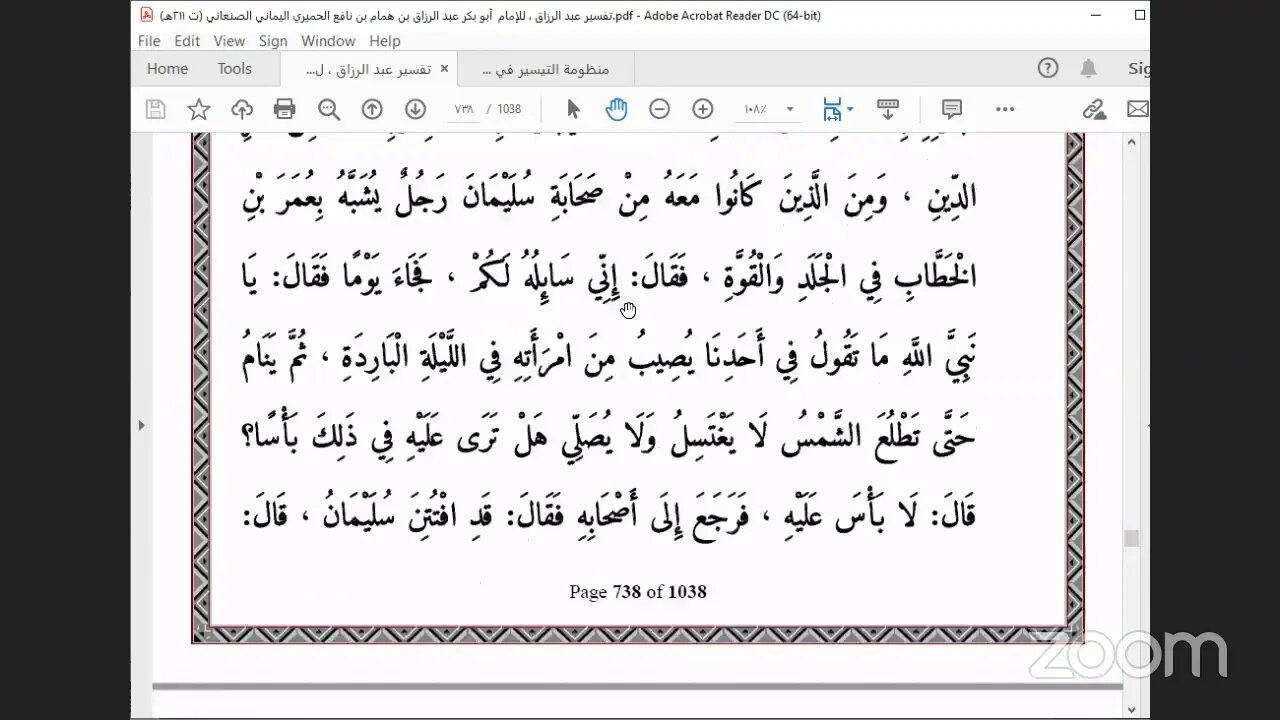 تفسير عبد الرزاق ، للإمام أبو بكر عبد الرزاق بن همام بن نافع الحميري اليماني الصنعاني (ت ٢١١هـ).pdf - Adobe Acrobat Reader DC (64-bit)
File Edit View Sign Window Help
Home Tools تفسير عبد الرزاق ، ل... × منظومة التيسير في ...
٧٣٨ / 1038 ١٠٨٪
الدِّينِ ، وَمِنَ الَّذِينَ كَانُوا مَعَهُ مِنْ صَحَابَةِ سُلَيْمَانَ رَجُلٌ يُشَبَّهُ بِعُمَرَ بْنِ
الْخَطَّابِ فِي الْجَلَدِ وَالْقُوَّةِ ، فَقَالَ: إِنِّي سَايِلُهُ لَكُمْ ، فَجَاءَ يَوْمًا فَقَالَ: يَا
نَبِيَّ اللَّهِ مَا تَقُولُ فِي أَحَدِنَا يُصِيبُ مِنَ امْرَأَتِهِ فِي اللَّيْلَةِ الْبَارِدَةِ ، ثُمَّ يَنَامُ
حَتَّى تَطْلُعَ الشَّمْسُ لَا يَغْتَسِلُ وَلَا يُصَلِّي هَلْ تَرَى عَلَيْهِ فِي ذَلِكَ بَأْسًا؟
قَالَ: لَا بَأْسَ عَلَيْهِ ، فَرَجَعَ إِلَى أَصْحَابِهِ فَقَالَ: قَدِ افْتُتِنَ سُلَيْمَانُ ، قَالَ:
Page 738 of 1038
zoom